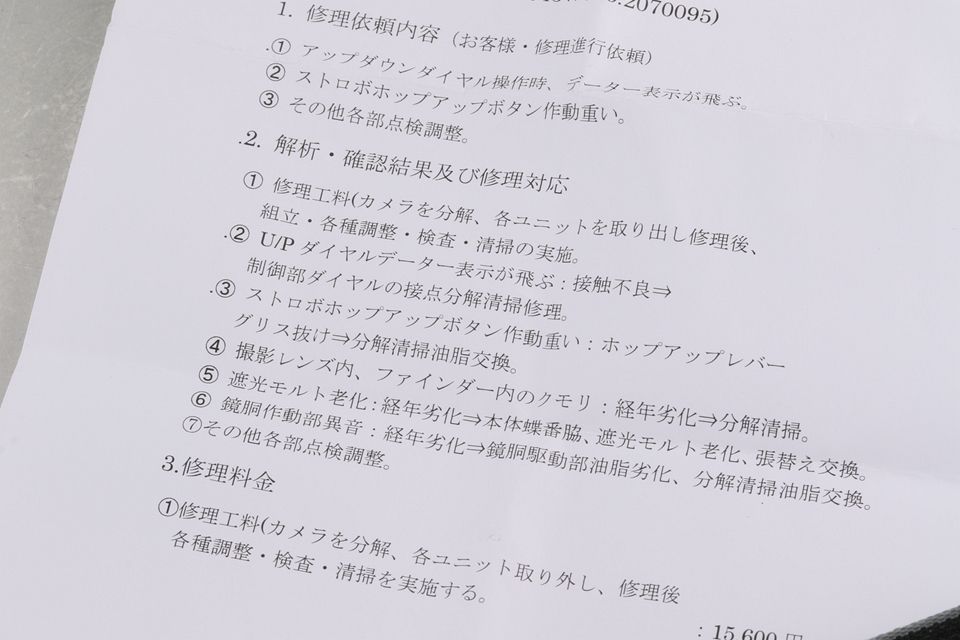 .2070095)
1. 修理依頼内容（お客様・修理進行依頼）
.① アップダウンダイヤル操作時、データー表示が飛ぶ。
② ストロボホップアップボタン作動重い。
③ その他各部点検調整。
.2. 解析・確認結果及び修理対応
① 修理工料(カメラを分解、各ユニットを取り出し修理後、
組立・各種調整・検査・清掃の実施。
.② U/P ダイヤルデーター表示が飛ぶ：接触不良⇒
制御部ダイヤルの接点分解清掃修理。
.③ ストロボホップアップボタン作動重い：ホップアップレバー
グリス抜け⇒分解清掃油脂交換。
④ 撮影レンズ内、ファインダー内のクモリ：経年劣化⇒分解清掃。
⑤ 遮光モルト老化：経年劣化⇒本体蝶番脇、遮光モルト老化、張替え交換。
⑥ 鏡胴作動部異音：経年劣化⇒鏡胴駆動部油脂劣化、分解清掃油脂交換。
⑦その他各部点検調整。
3.修理料金
①修理工料(カメラを分解、各ユニット取り外し、修理後
各種調整・検査・清掃を実施する。
：15,600 円